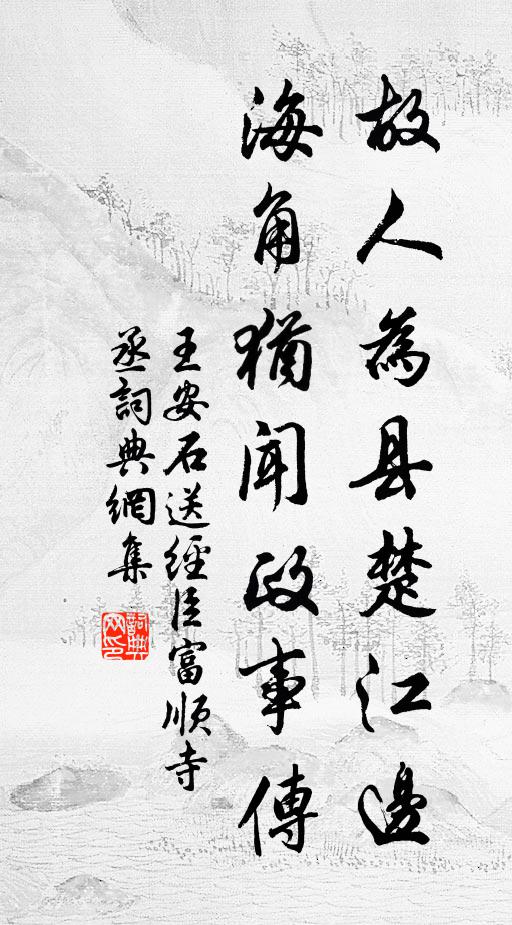 故人為县楚江邊
海角猶聞政事傳
王安石送經臣富順寺
丞詞典網集
詞典网印